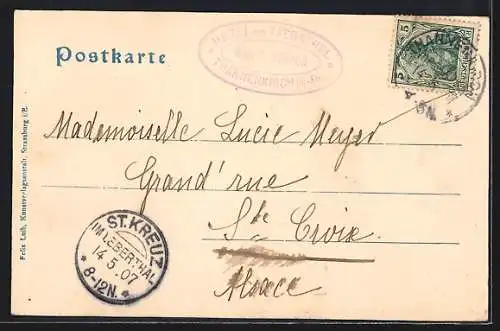 Postkarte
THANNENKIRCH
5
Mademoiselle Lucie Meyer
Grand' rue
Ste Croix
Alsace
ST. KREUZ
IM LEBERTHAL
14.5.07
8-12N.
Felix Luib, Kunstverlagsanstalt, Strassburg i/E.